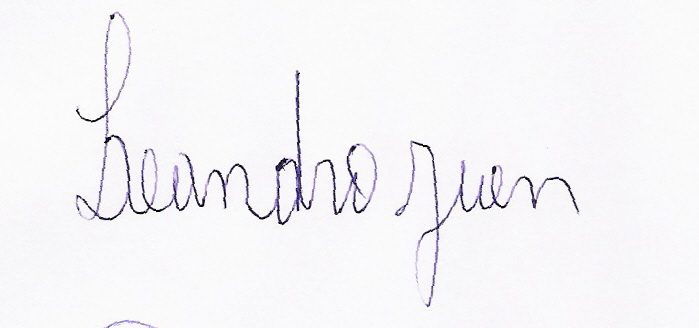 Leandro Juen